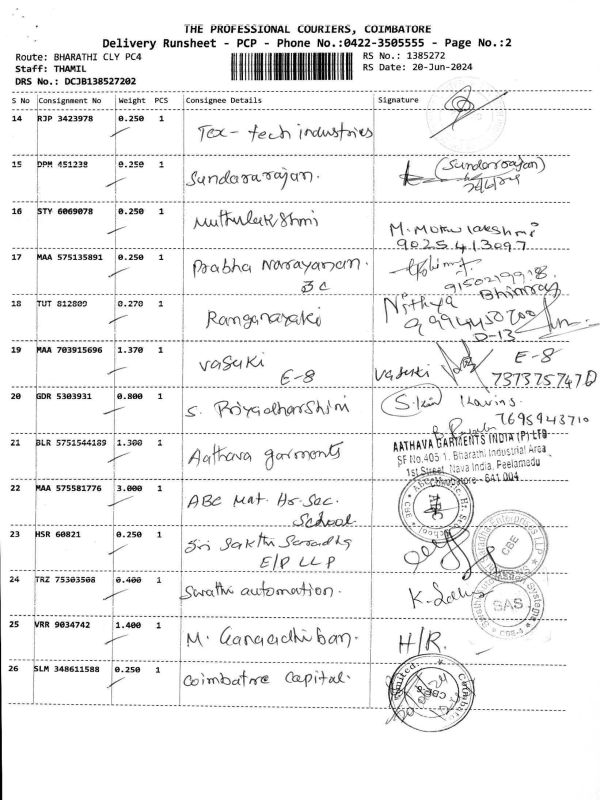 THE PROFESSIONAL COURIERS, COIMBATORE
Delivery Runsheet - PCP - Phone No.:0422-3505555 - Page No.:2
Route: BHARATHI CLY PC4
RS No.: 1385272
Staff: THAMIL
RS Date: 20-Jun-2024
DRS No.: DCJB138527202
S No Consignment No Weight PCS Consignee Details Signature
14 RJP 3423978 0.250 1 Tex-tech industries
15 DPM 451238 0.250 1 Sundararajan. (Sundararajan)
16 STY 6069078 0.250 1 Muthulakshmi M. Muthulakshmi
9025413097
17 MAA 575135891 0.250 1 Prabha Narayanan.
3C
9150219918
18 TUT 812809 0.270 1 Ranganayaki Nithya Bhimraj
9994450700
D-13
19 MAA 703915696 1.370 1 vasuki vasuki E-8
E-8 7373757470
20 GDR 5303931 0.800 1 S. Priyadharshini
7695943710
21 BLR 5751544189 1.300 1 Aathava garments AATHAVA GARMENTS INDIA (P) LTD
SF No.405 1, Bharathi Industrial Area
1st Street, Nava India, Peelamedu
Coimbatore - 641 004
22 MAA 575581776 3.000 1 ABC Mat. Hr. Sec.
School
23 HSR 60821 0.250 1 Sri Sakthi Saradha
E/P LLP
24 TRZ 75303508 0.400 1 Swathi automation.
SAS
25 VRR 9034742 1.400 1 M. Ganaadhiban. H/R.
26 SLM 348611588 0.250 1 Coimbatore Capital.